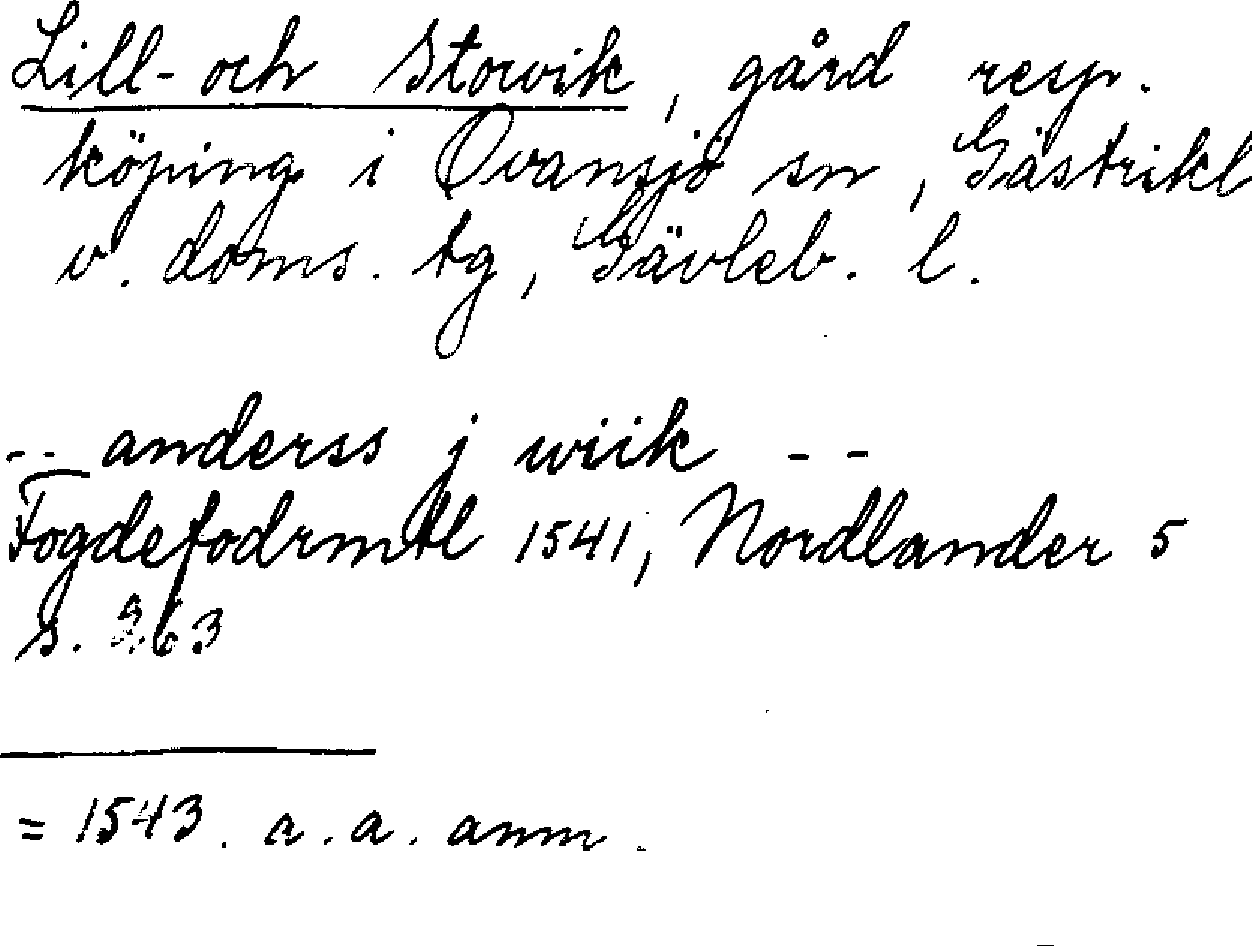 Lill- och Storvik, gård resp.
köping i Ovansjö sn, Gästrikl
v. doms. tg, Gävleb. l.
-- anderss j wiik --
Fogdefodrmtl 1541, Nordlander 5
s. 263
= 1543. a.a. anm.